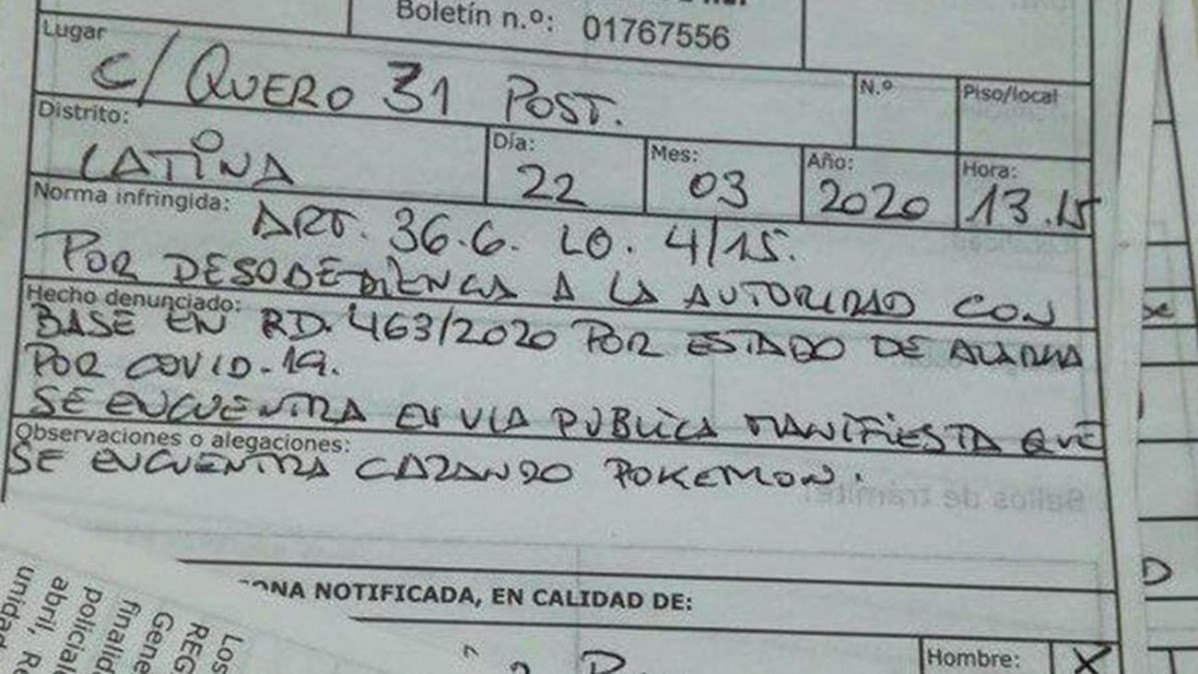 Boletín n.º: 01767556
Lugar
C/ QUERO 31 POST.
N.º
Piso/local
Distrito:
LATINA
Día:
22
Mes:
03
Año:
2020
Hora:
13.15
Norma infringida:
ART. 36.6. LO. 4/15.
POR DESOBEDIENCIA A LA AUTORIDAD CON
Hecho denunciado:
BASE EN RD. 463/2020 POR ESTADO DE ALARMA
POR COVID-19.
SE ENCUENTRA EN VIA PUBLICA MANIFIESTA QUE
Observaciones o alegaciones:
SE ENCUENTRA CAZANDO POKEMON.
Sellos de trámite:
NOTIFICADA, EN CALIDAD DE:
Hombre: X
Los
REG
Gene
finalid
policial
abril, Re
unidad